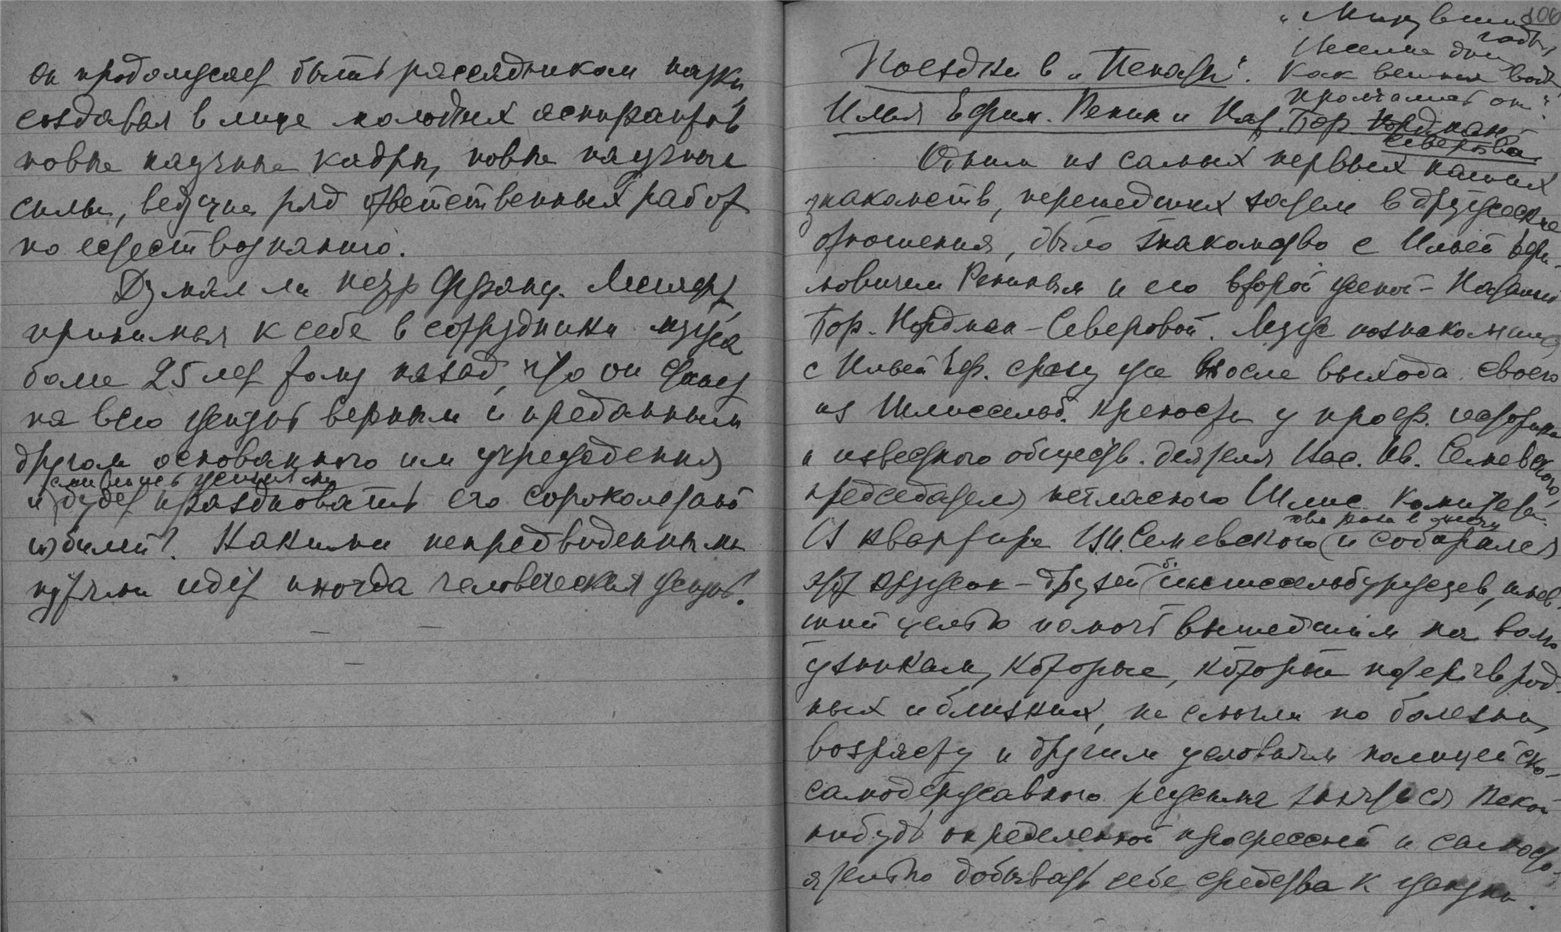 он продолжает быть рассадником науки
создавая в лице молодых аспирантов
новые научные кадры, новые научные
силы, ведущие ряд ответственных работ
по естествознанию.
Думал ли Петр Францев. Лесгафт,
принимая к себе в сотрудники музея
более 25 лет тому назад, что он станет
на всю жизнь верным и преданным
другом основанного им учреждения
и будет праздновать его сорокалетний
юбилей? Какими непредвиденными
путями идет иногда человеческая жизнь!
106
"Минувшие годы,
Веселые дни
Как вешние воды
промчались они".
Поездки в "Пенаты".
Илья Ефим. Репин и Нат. Бор. Нордман-
Северова
Одним из самых первых наших
знакомств, перешедших затем в дружеские
отношения, было знакомство с Ильей Ефи-
мовичем Репиным и его второй женой - Натальей
Бор. Нордман-Северовой. Муж познакомился
с Ильей Еф. сразу же после выхода своего
из Шлиссельб. крепости у проф. истории
и известного обществ. деятеля Вас. Ив. Семевского,
председателя негласного Шлис. Комитета.
В квартире В.И. Семевского два раза в месяц и собирался
этот кружок - друзей шлиссельбуржцев, имев-
ший целью помочь вышедшим на волю
узникам, которые, потеряв род-
ных и близких, не смогли по болезни,
возрасту и другим условиям полицейско-
самодержавного режима заняться какой
нибудь определенной профессией и самосто-
ятельно добывать себе средства к жизни.